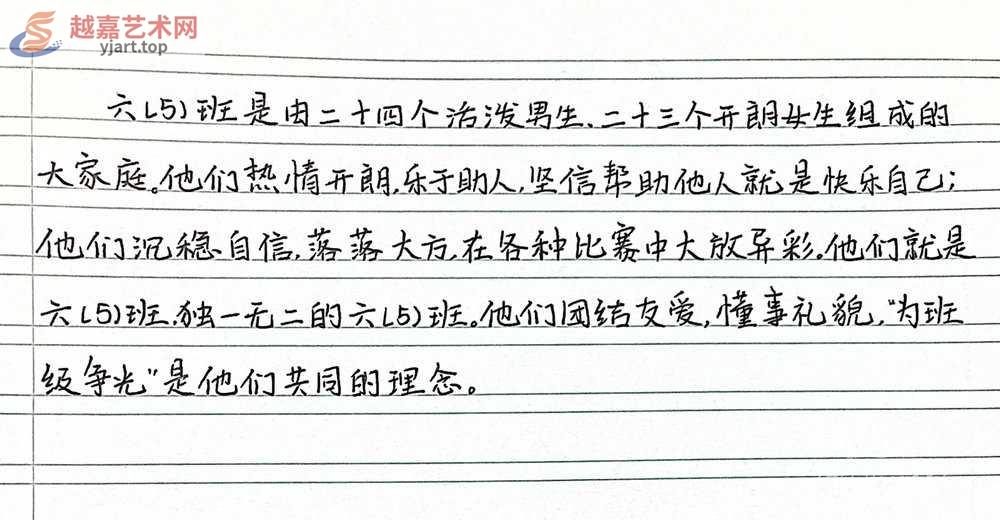 越嘉艺术网
yjart.top
六(5)班是由二十四个活泼男生、二十三个开朗女生组成的
大家庭。他们热情开朗,乐于助人,坚信帮助他人就是快乐自己;
他们沉稳自信,落落大方,在各种比赛中大放异彩。他们就是
六(5)班,独一无二的六(5)班。他们团结友爱,懂事礼貌,“为班
级争光”是他们共同的理念。